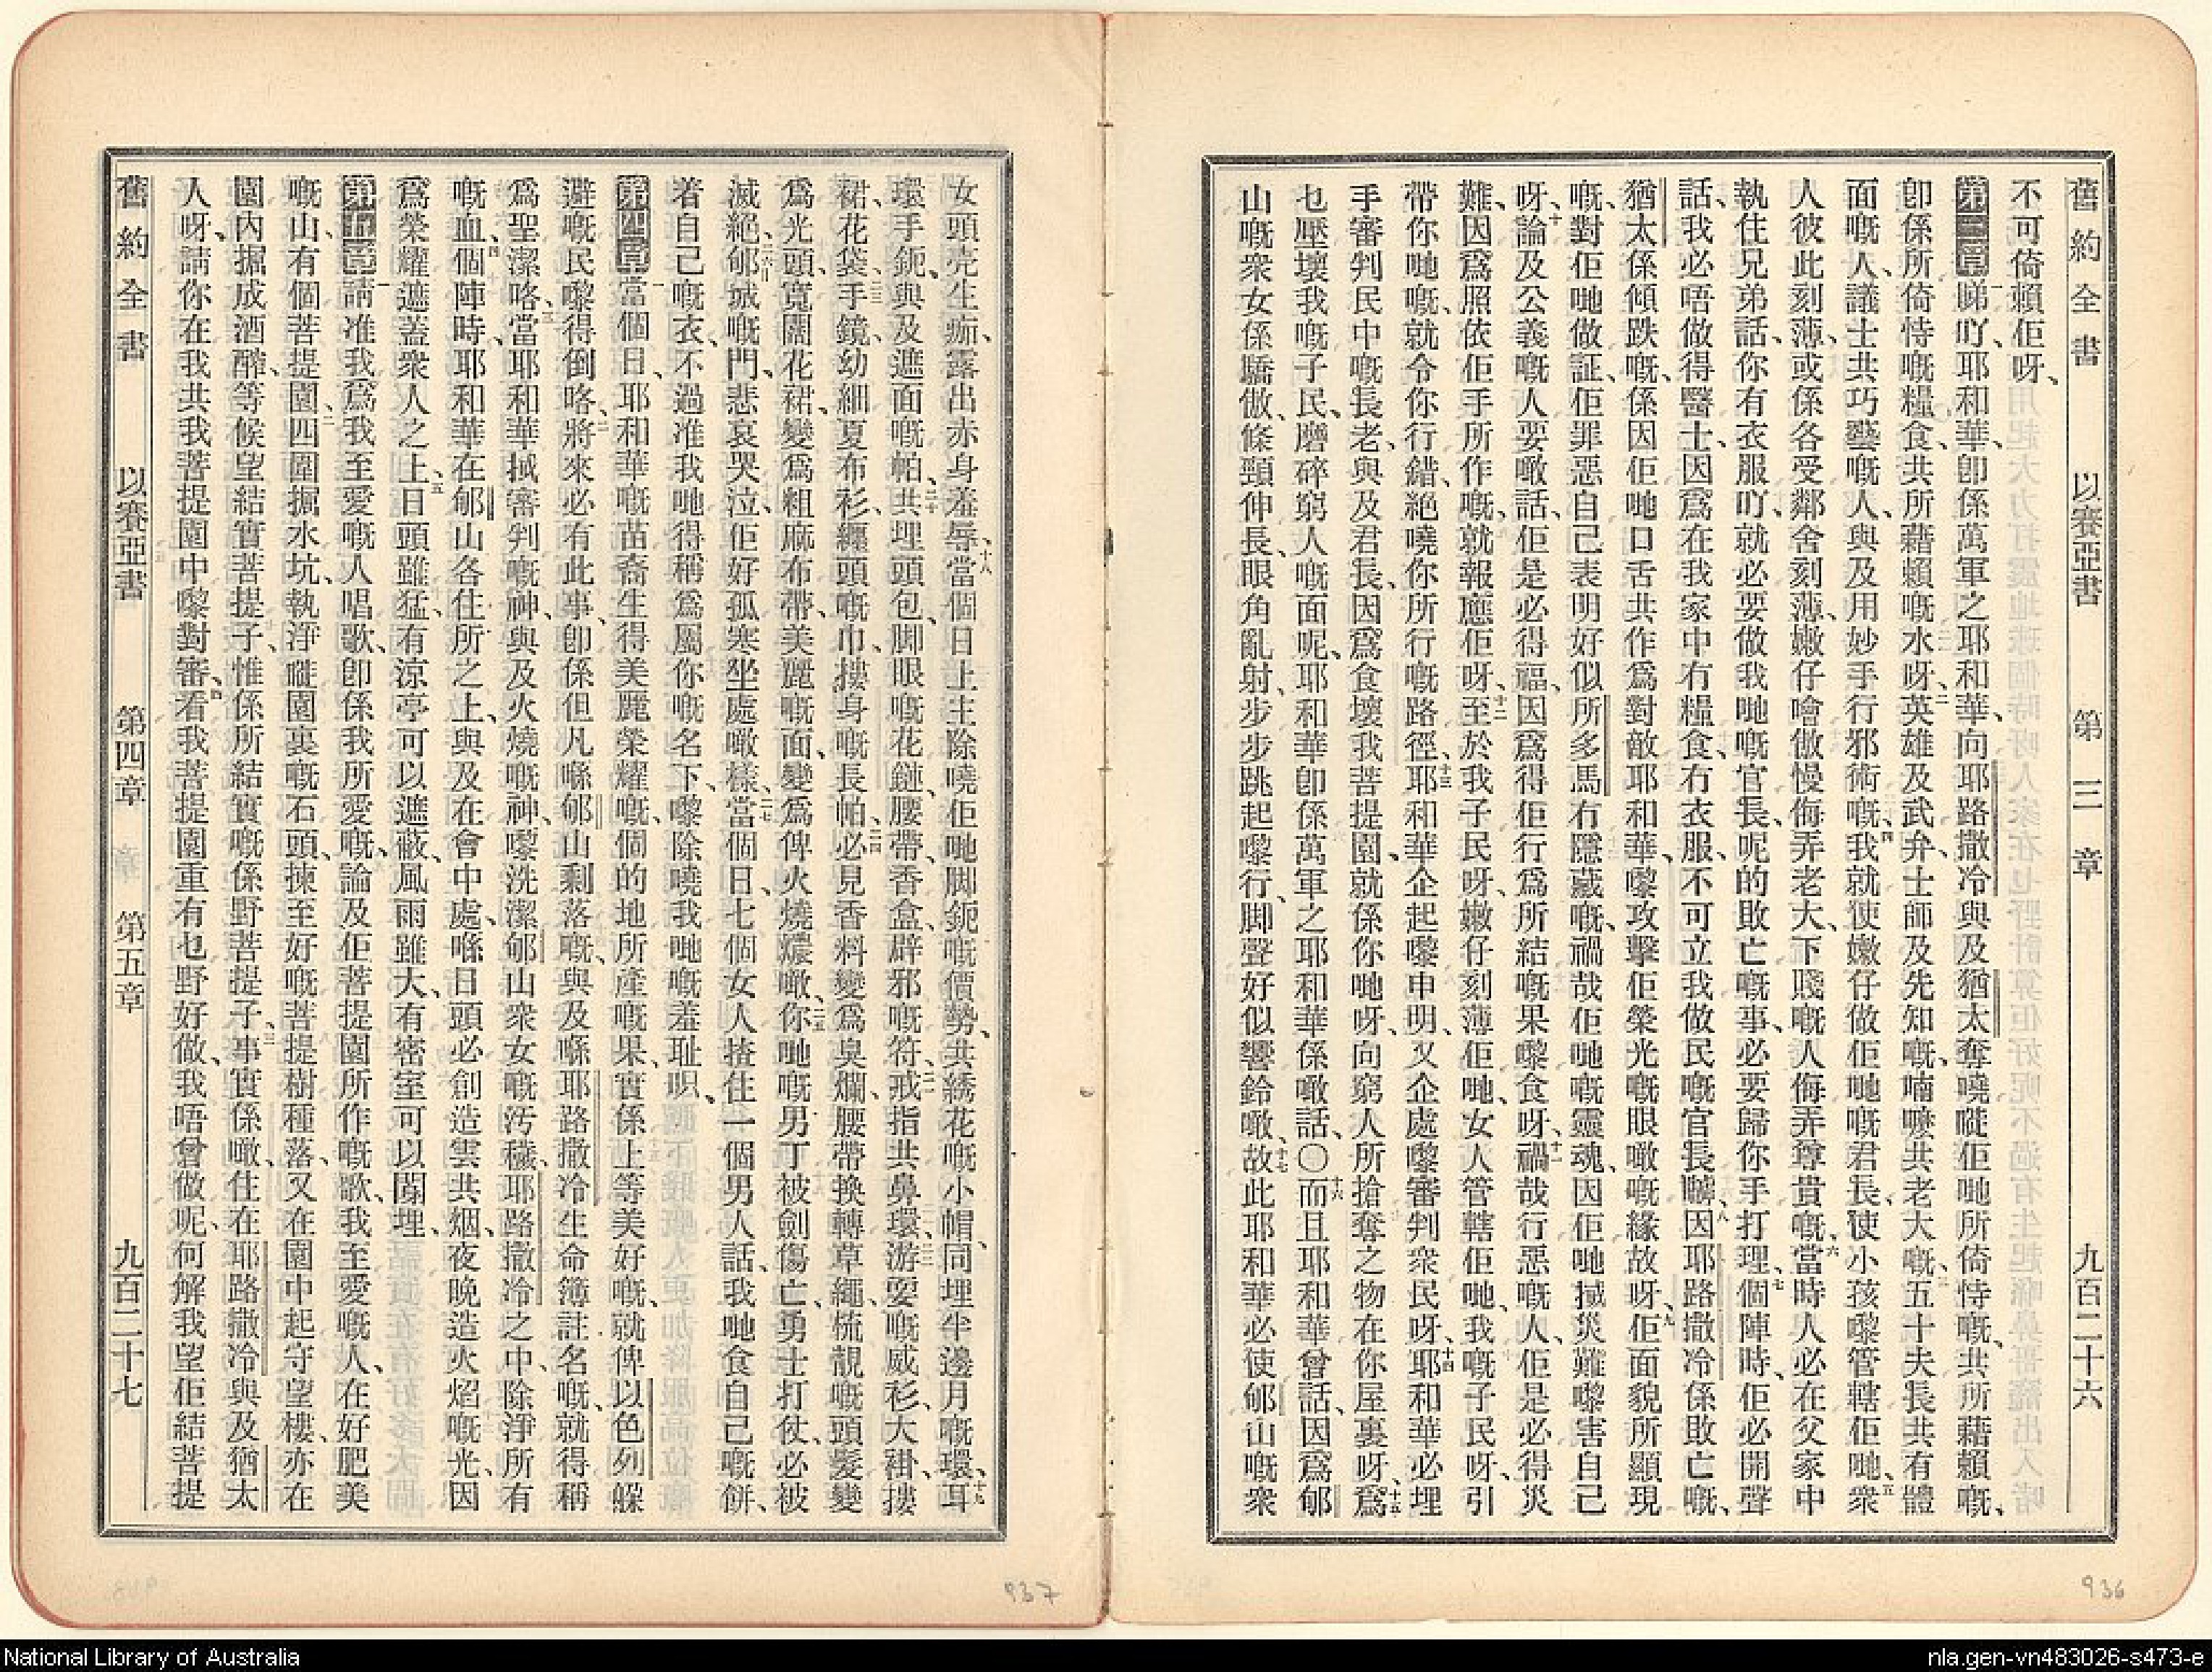 舊約全書 以賽亞書 第三章 九百二十六
不可倚賴佢呀、
第三章 一睇吖、耶和華、卽係萬軍之耶和華、向耶路撒冷與及猶太奪曉嘥佢哋所倚恃嘅、共所藉賴嘅、
卽係所倚恃嘅糧食、共所藉賴嘅水呀、二英雄及武弁、士師及先知嘅、喃嚟共老大嘅、三五十夫長共有體
面嘅人、議士共巧藝嘅人、與及用妙手行邪術嘅、四我就使嫩仔做佢哋嘅君長、使小孩嚟管轄佢哋、五衆
人彼此刻薄、或係各受鄰舍刻薄、嫩仔噲傲慢侮弄老大、下賤嘅人侮弄尊貴嘅、六當時人必在父家中
執住兄弟話、你有衣服吖、就必要做我哋嘅官長、呢的敗亡嘅事、必要歸你手打理、七個陣時、佢必開聲
話、我必唔做得醫士、因爲在我家中冇糧食、冇衣服、不可立我做民嘅官長嚹、八因耶路撒冷係敗亡嘅、
猶太係傾跌嘅、係因佢哋口舌共作爲對敵耶和華、嚟攻擊佢榮光嘅眼噉嘅緣故呀、九佢面貌所顯現
嘅、對佢哋做証、佢罪惡自己表明好似所多馬冇隱藏嘅、禍哉佢哋嘅靈魂、因佢哋搣災難嚟害自己
呀、十論及公義嘅人、要噉話、佢是必得福、因爲得佢行爲所結嘅果嚟食呀、十一禍哉行惡嘅人、佢是必得災
難、因爲照依佢手所作嘅、就報應佢呀、十二至於我子民呀、嫩仔刻薄佢哋、女人管轄佢哋、我嘅子民呀、引
帶你哋嘅、就令你行錯、絕曉你所行嘅路徑、十三耶和華企起嚟申明、又企處嚟審判衆民呀、十四耶和華必埋
手審判民中嘅長老、與及君長、因爲食壞我菩提園、就係你哋呀、向窮人所搶奪之物在你屋裏呀、十五爲
乜壓壞我嘅子民、磨碎窮人嘅面呢、耶和華卽係萬軍之耶和華係噉話、〇十六而且耶和華曾話、因爲郇
山嘅衆女係驕傲、條頸伸長、眼角亂射、步步跳起嚟行、脚聲好似響鈴噉、十七故此耶和華必使郇山嘅衆
女頭壳生痂、露出赤身羞辱、十八當個日上主除曉佢哋脚鈪嘅價勢、共綉花嘅小帽、同埋半邊月嘅環、十九耳
環、手鈪、與及遮面嘅帕、二十共埋頭包、脚眼嘅花鏈、腰帶、香盒、辟邪嘅符、二一戒指共鼻環、二二游耍嘅威衫、大褂、摟
裙、花袋、二三手鏡、幼細夏布衫、纏頭嘅巾、摟身嘅長帕、二四必見香料變爲臭爛、腰帶換轉草繩、梳靚嘅頭髮變
爲光頭、寬闊花裙、變爲粗麻布帶、美麗嘅面、變爲俾火燒燶噉、二五你哋嘅男丁被劍傷亡、勇士打仗、必被
滅絕、二六郇城嘅門、悲哀哭泣、佢好孤寒坐處噉樣、二七當個日、七個女人揸住一個男人話、我哋食自己嘅餅、
着自己嘅衣、不過准我哋得稱爲屬你嘅名下、嚟除曉我哋嘅羞耻呮、
第四章 一當個日、耶和華嘅苗裔生得美麗榮耀嘅、個的地所產嘅果、實係上等美好嘅、就俾以色列躱
避嘅民嚟得倒咯、二將來必有此事、卽係但凡喺郇山剩落嘅、與及喺耶路撒冷生命簿註名嘅、就得稱
爲聖潔咯、三當耶和華搣審判嘅神、與及火燒嘅神、嚟洗潔郇山衆女嘅汚穢、耶路撒冷之中、除淨所有
嘅血、四個陣時、耶和華在郇山各住所之上、與及在會中處、喺日頭必創造雲共烟、夜晚造火焰嘅光、因
爲榮耀遮蓋衆人之上、五日頭雖猛、有凉亭可以遮蔽、風雨雖大、有密室可以閪埋、
第五章 一請准我爲我至愛嘅人唱歌、卽係我所愛嘅、論及佢菩提園所作嘅歌、我至愛嘅人、在好肥美
嘅山、有個菩提園、二四圍掘水坑、執淨嘥園裏嘅石頭、揀至好嘅菩提樹種落、又在園中起守望樓、亦在
園內掘成酒醡、等候望結實菩提子、惟係所結實嘅係野菩提子、三事實係噉、住在耶路撒冷與及猶太
人呀、請你在我共我菩提園中嚟對審、四看我菩提園重有乜野好做、我唔曾做呢、何解我望佢結菩提
舊約全書 以賽亞書 第四章 第五章 九百二十七
937
936
National Library of Australia
nla.gen-vn483026-s473-e